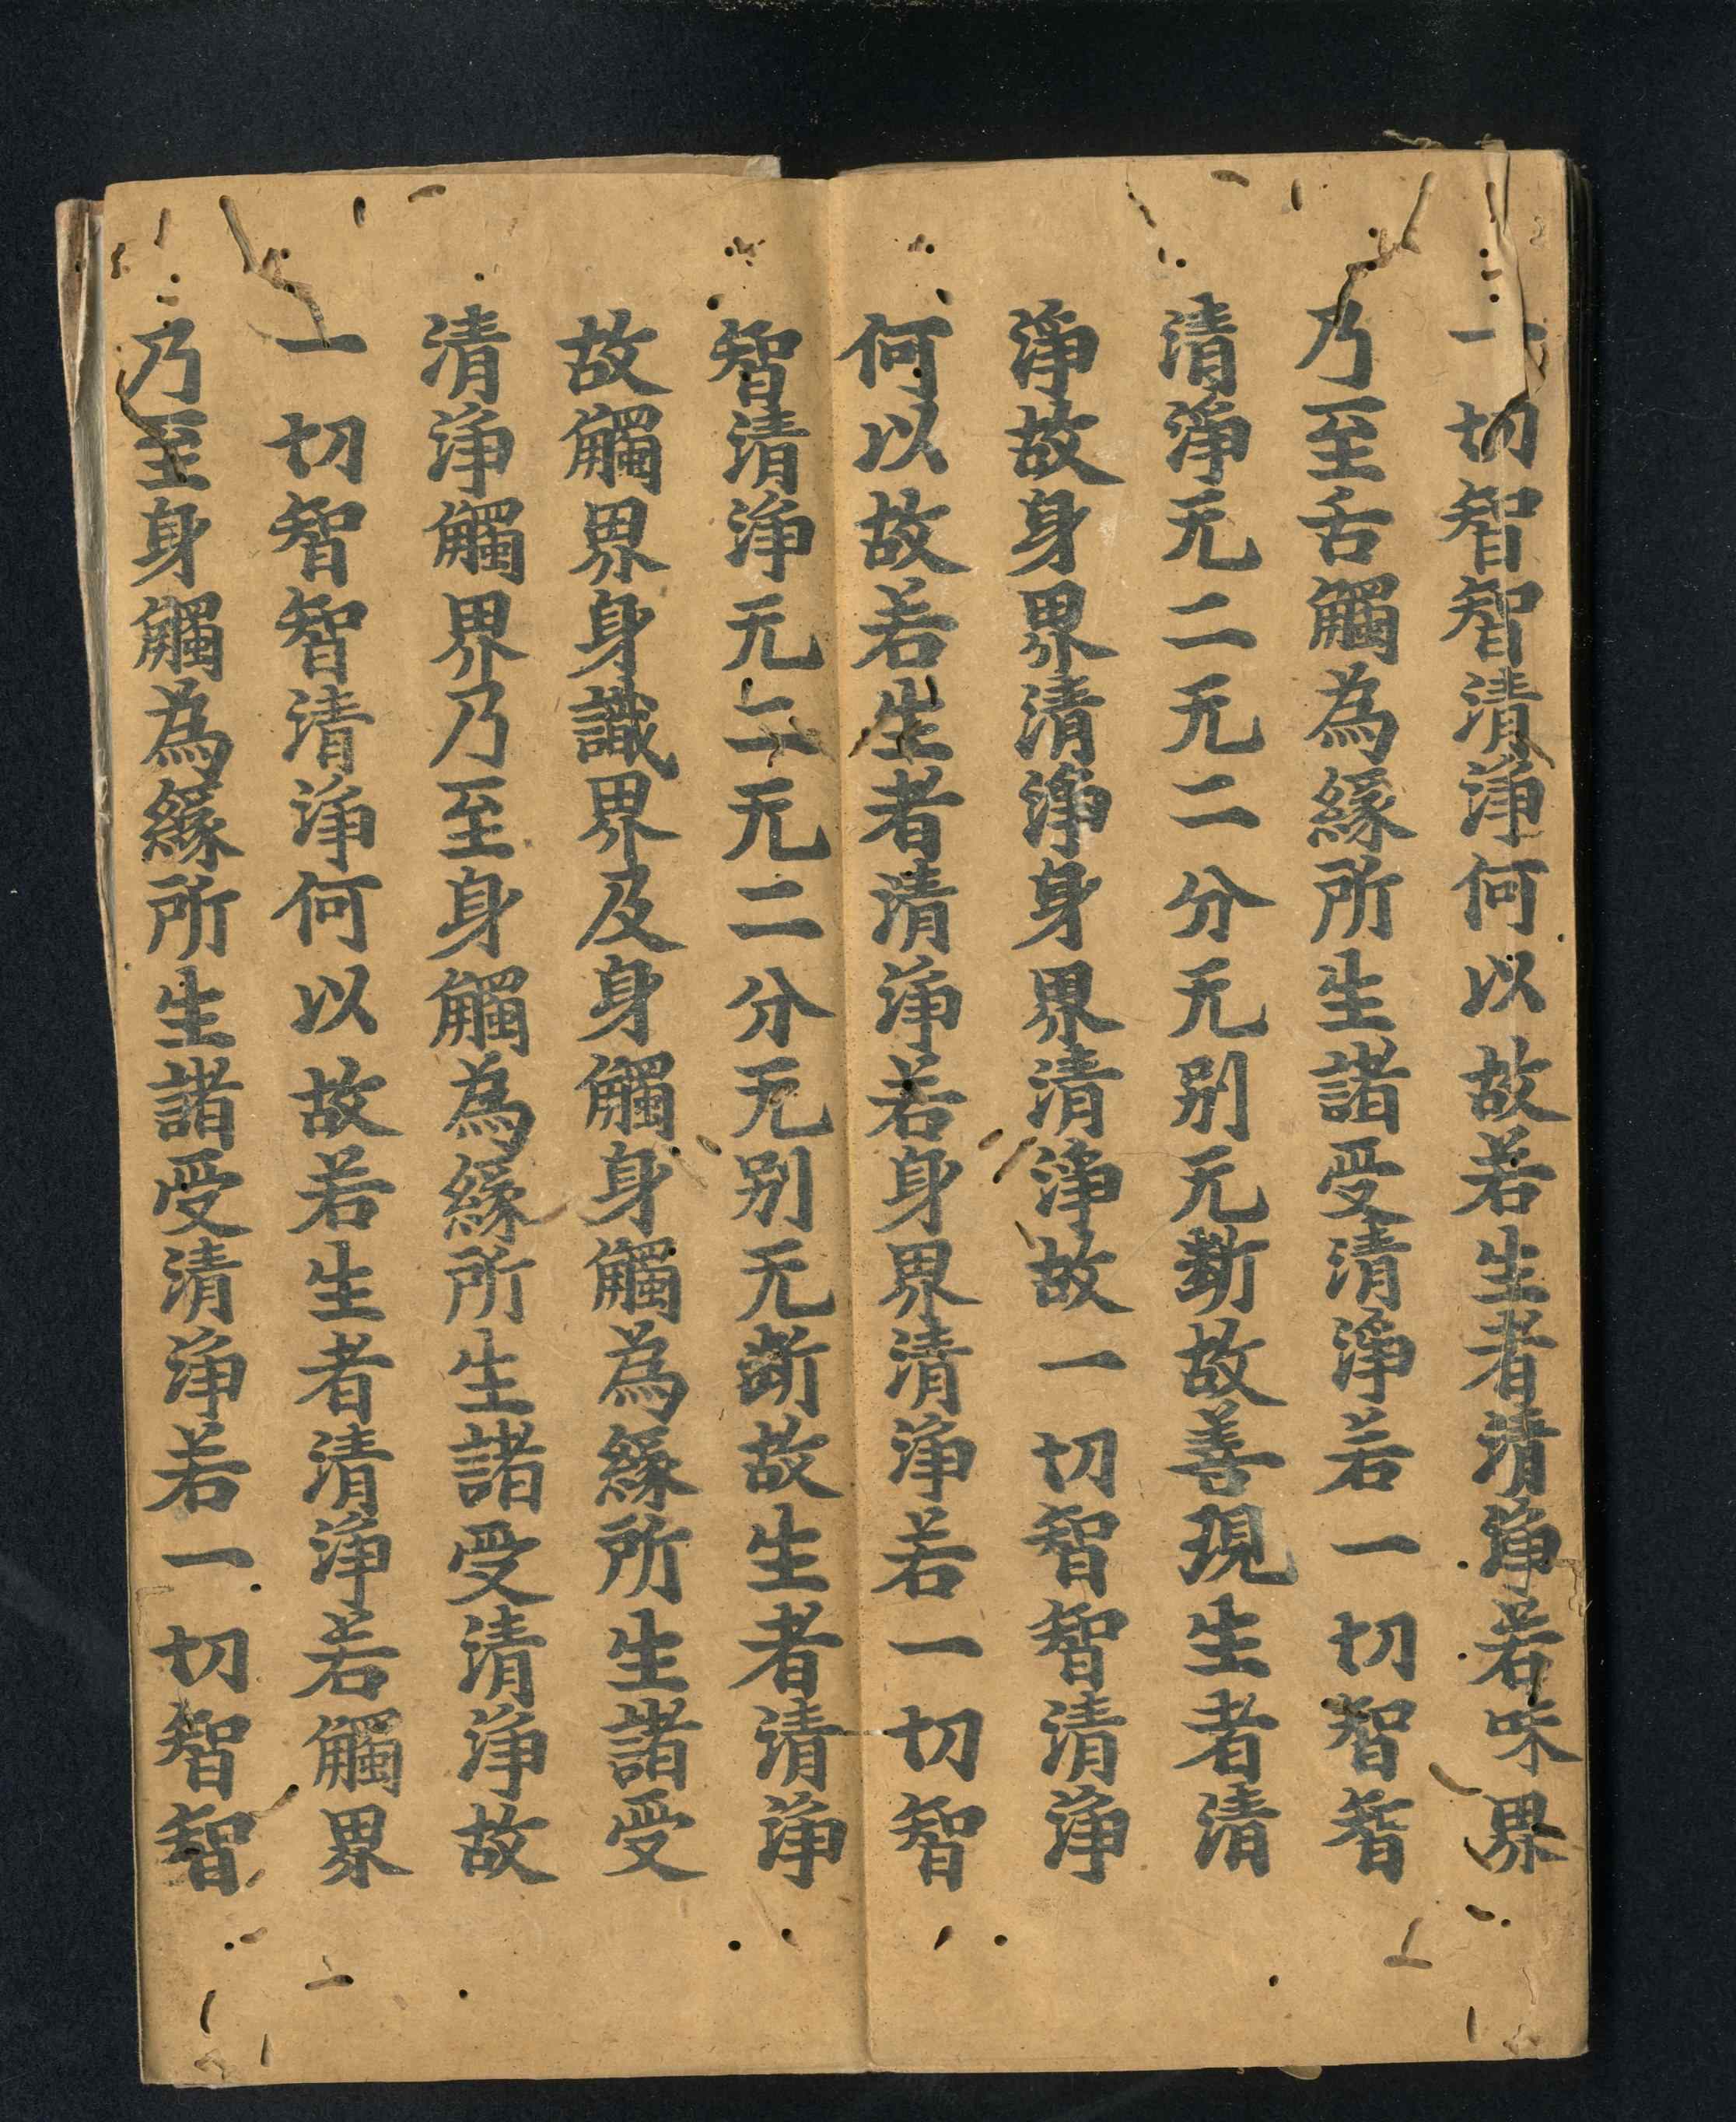 一切智智清淨何以故若生者清淨若味界
乃至舌觸為緣所生諸受清淨若一切智智
清淨无二无二分无别无斷故善現生者清
淨故身界清淨身界清淨故一切智智清淨
何以故若生者清淨若身界清淨若一切智
智清淨无二无二分无别无斷故生者清淨
故觸界身識界及身觸身觸為緣所生諸受
清淨觸界乃至身觸為緣所生諸受清淨故
一切智智清淨何以故若生者清淨若觸界
乃至身觸為緣所生諸受清淨若一切智智